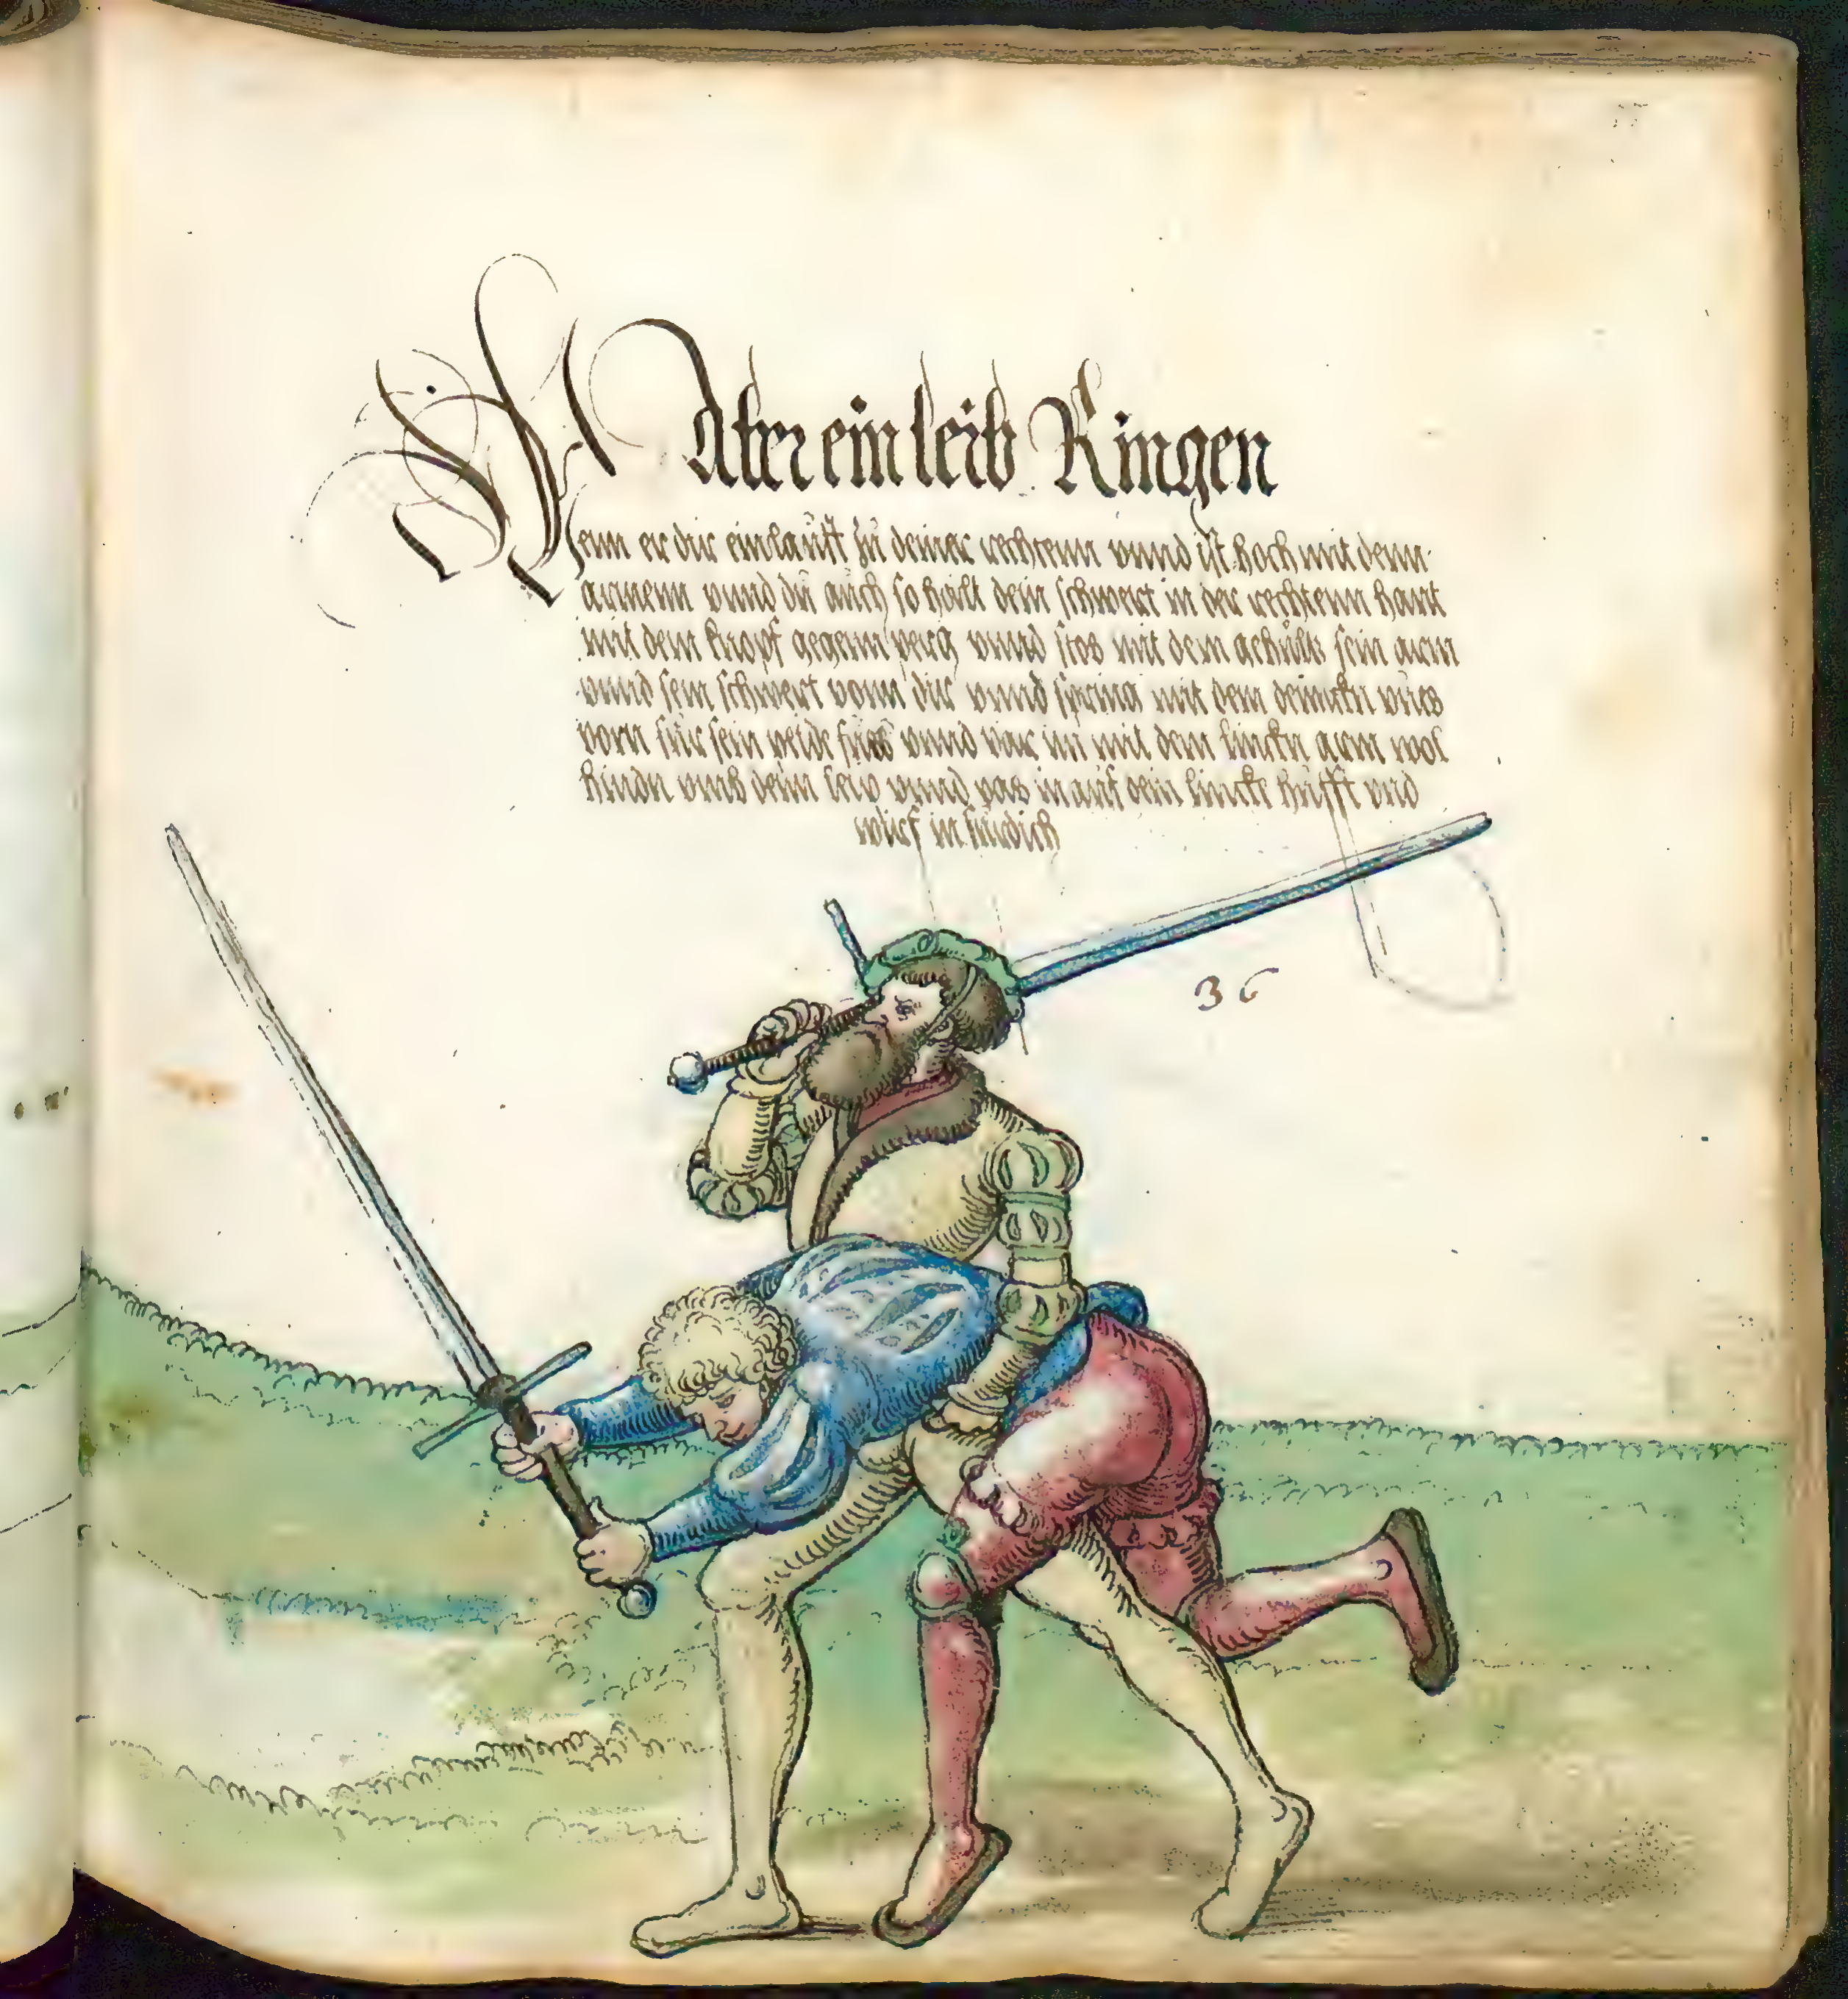 Aber ein leib Ringen
Wenn er dir einlaufft zu deiner rechtenn vnnd ist hoch mit denn
armenn vnnd du auch so halt dein schwert in der rechtenn hant
mit dem knopf gegenn perg vnnd stos mit dem gehults sein arm
vnnd sein schwert vonn dir vnnd spring mit dem linckn vues
vorn fur sein peide fues vnnd var im mit dem linckn arm wol
hindn vmb denn leib vnnd vas in auf dein lincke hufft vnd
wirf in fur dich
36